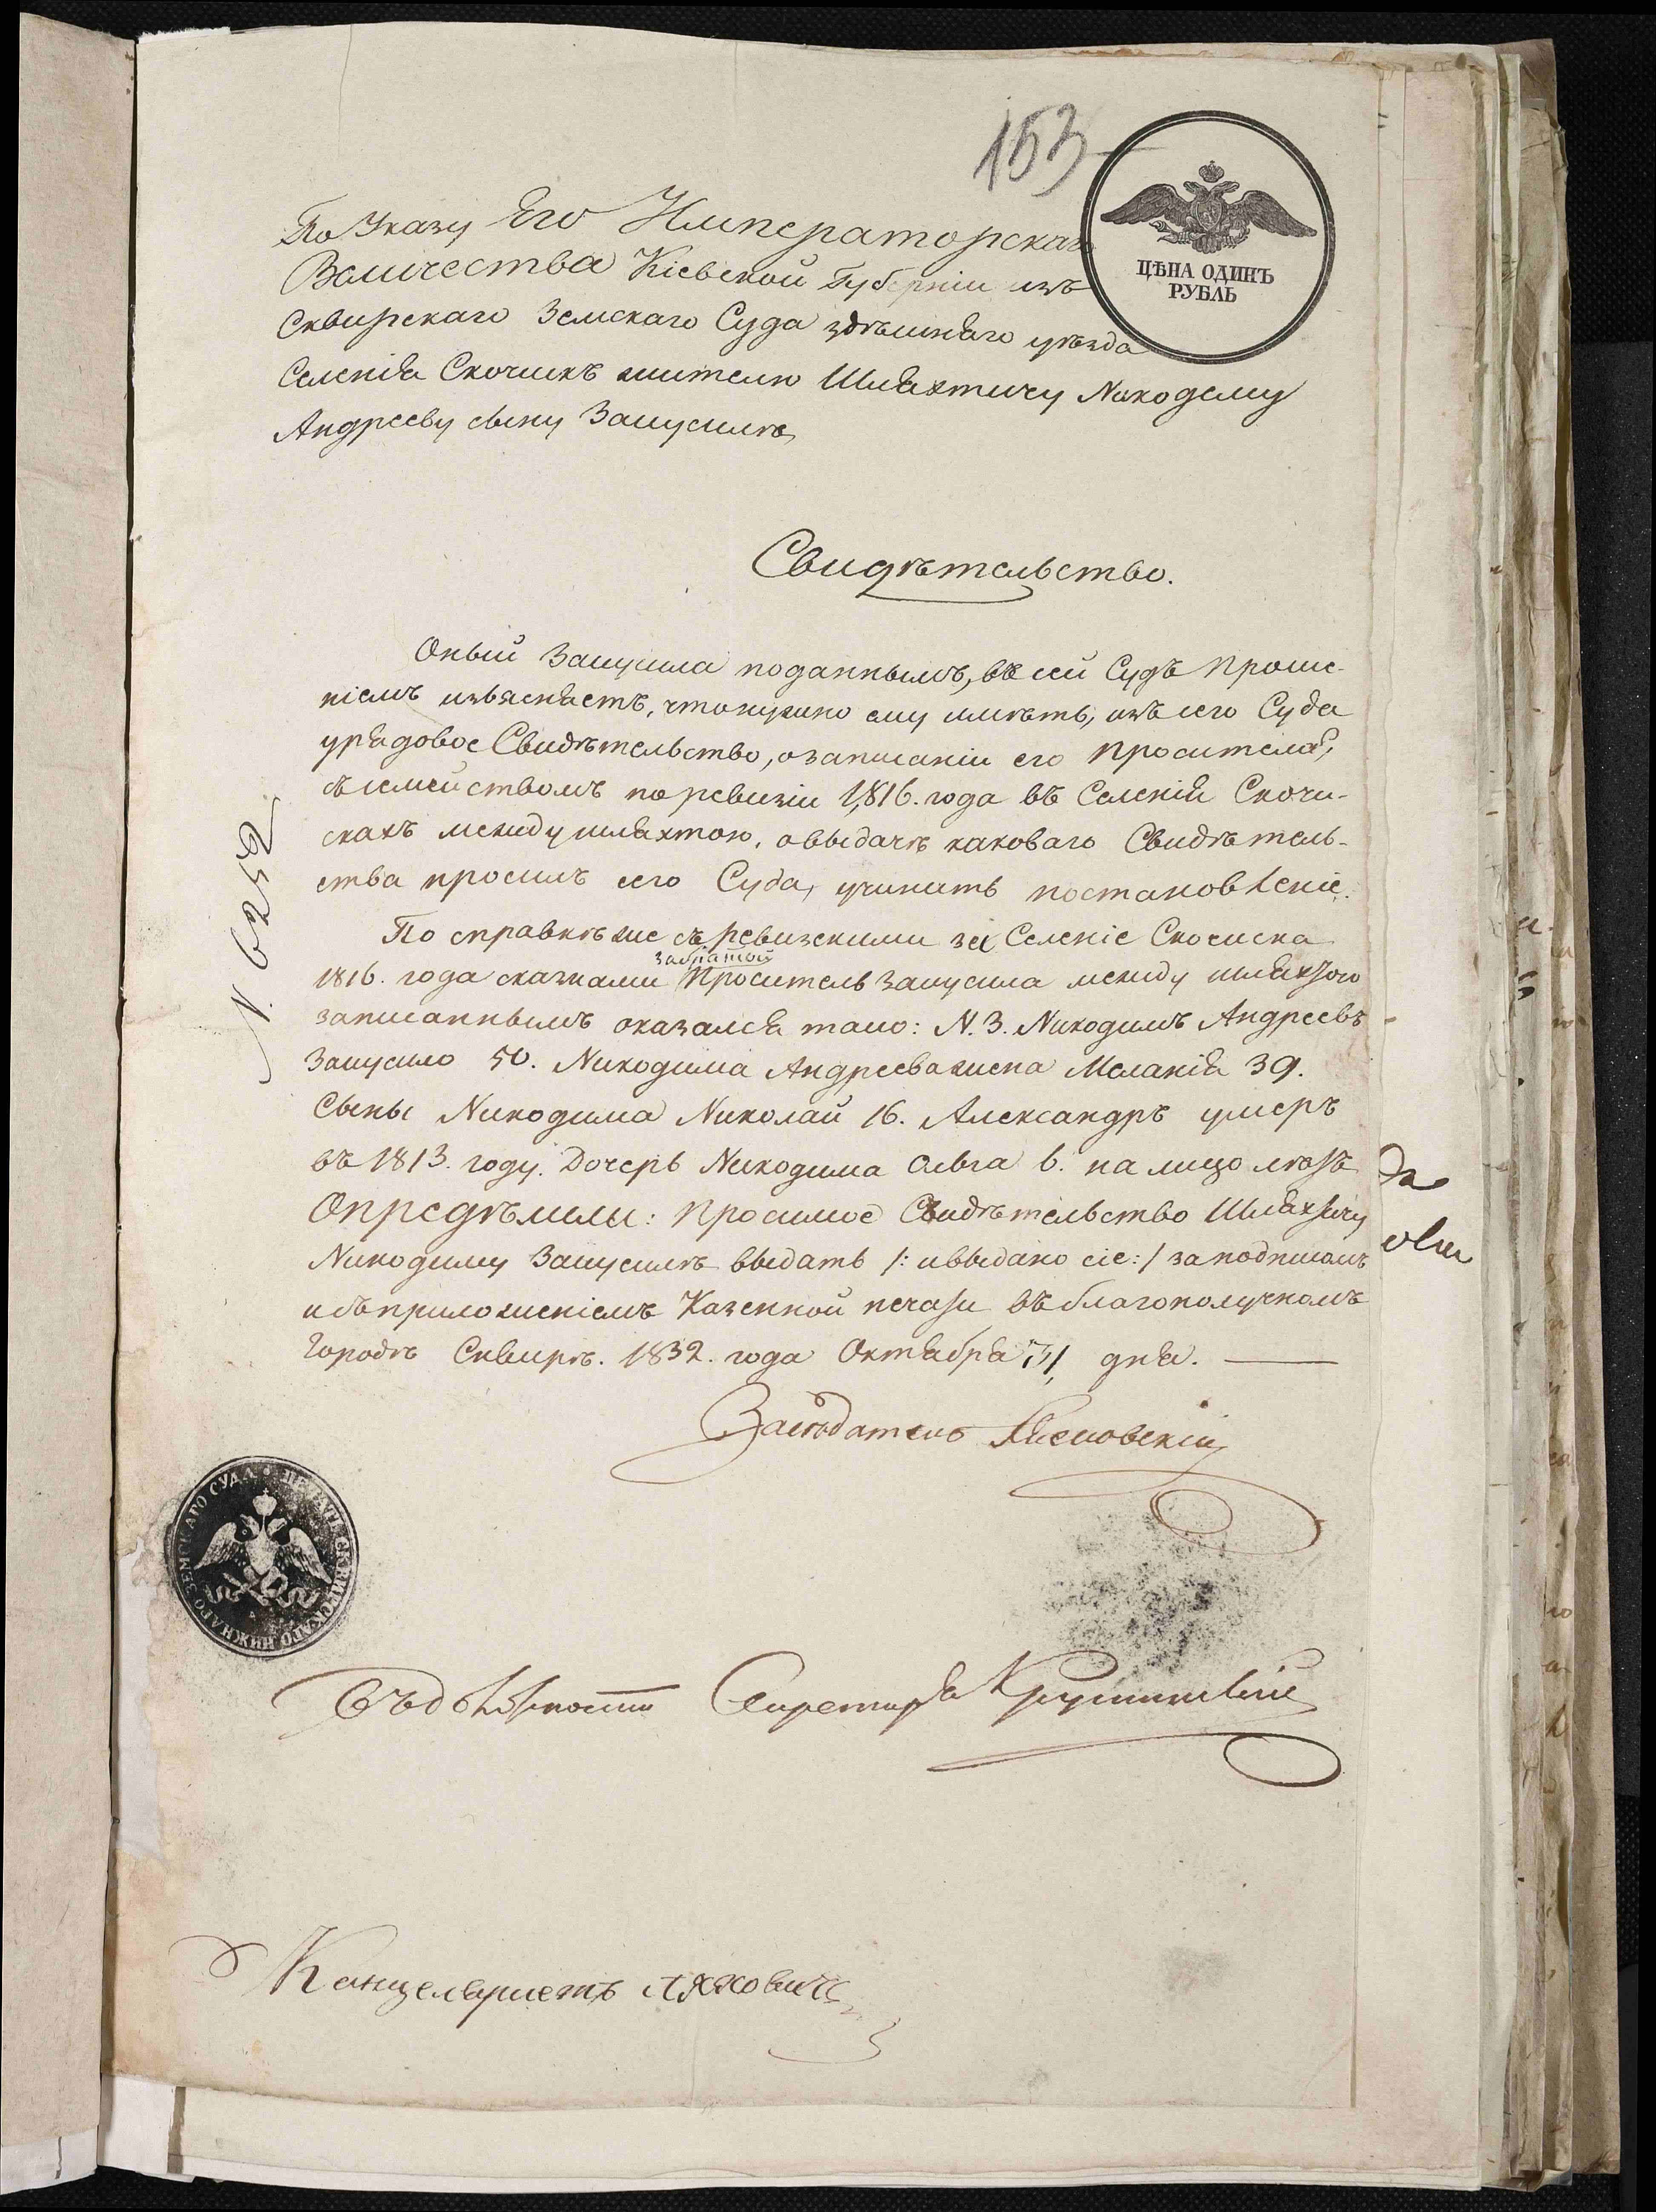 153
ЦѢНА ОДИНЪ
РУБЛЬ
По Указу Его Императорскаго
Величества Кіевской Губерніи изъ
Сквирскаго Земскаго Суда здѣшняго уѣзда
Селенія Скочискъ жителю Шляхтичу Никодему
Андрееву сыну Зашусилѣ
Свидѣтельство.
Оный Зашусила поданнымъ, въ сей Судъ проше-
ніемъ изъясняетъ, что нужно ему имѣть, изъ сего Суда
урядовое Свидѣтельство, о записаніи его просителя,
съ семействомъ по ревизіи 1816. года въ Селеніи Скочи-
скахъ между шляхтою, о выдачѣ каковаго Свидѣтель-
ства просилъ сего Суда, учинить постановленіе.
По справкѣ же съ ревизскими за Селеніе Скочиска
1816. года сказками проситель Зашусила между шляхтою
записаннымъ оказался тако: N. 3. Никодимъ Андреевъ
Зашусило 50. Никодима Андреева жена Меланія 39.
Сыны Никодима Николай 16. Александръ умеръ
въ 1813. году. Дочерь Никодима Ольга 6. на лицо лѣтъ
Опредѣлили: просимое Свидѣтельство Шляхтичу
Никодиму Зашусилѣ выдать /: и выдано сіе :/ за подписомъ
и съ приложеніемъ Казенной печати въ благополучномъ
Городѣ Сквирѣ. 1832. года Октября дня.
N. 6252
Засѣдатель
ЗЕМСКАГО СУДА
НИЖНЯГО
Секретаря
Канцеляристъ Ляховичъ